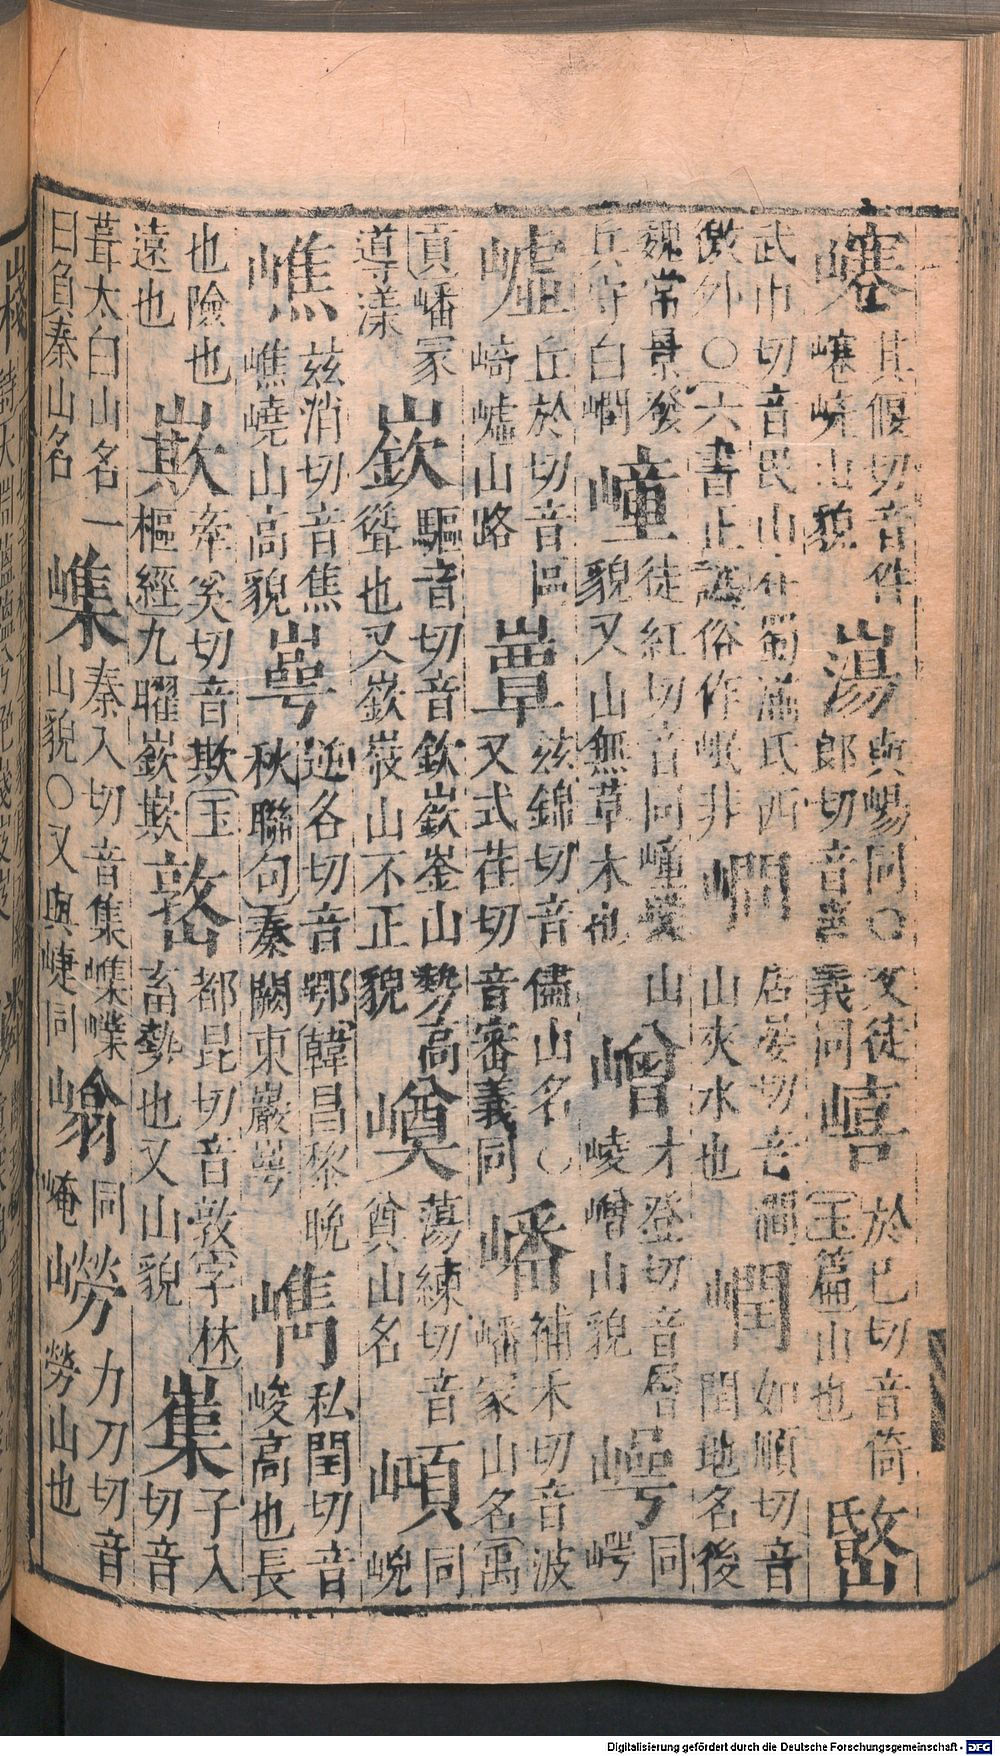 其偃切音件
山貌
與崵同○又徒
郎切音唐義同
嶬
於巳切音倚
玉篇山也
武巾切音民山在蜀湔氐西
徼外○六書正譌俗作岷非
居晏切音澗
山夾水也
如順切音
閏地名後
魏常景發
兵守白
徒紅切音同山
貌又山無草木也
嶒
才登切音層
崚嶒山貌
同
崿
丘於切音區
崎山路
兹錦切音儘山名○
又式荏切音審義同
嶓
補禾切音波
嶓冢山名禹
貢嶓冢
導漾
嶔
驅音切音欽嶔崟山勢高
聳也又嶔山不正貌
蕩練切音
奠山名
同
峴
嶕
兹消切音焦
嶕嶢山高貌
逆各切音鄂韓昌黎晚
秋聯句秦闕束巖崿
私閏切音
峻高也長
也險也
遠也
牽奚切音欺玉
樞經九曜嶔
都昆切音敦字林
畜勢也又山貌
子入
切音
葺太白山名一
曰負秦山名
秦入切音集
山貌○又與崨同
同
崦
嶗
力刀切音
勞山也
Digitalisierung gefördert durch die Deutsche Forschungsgemeinschaft - DFG